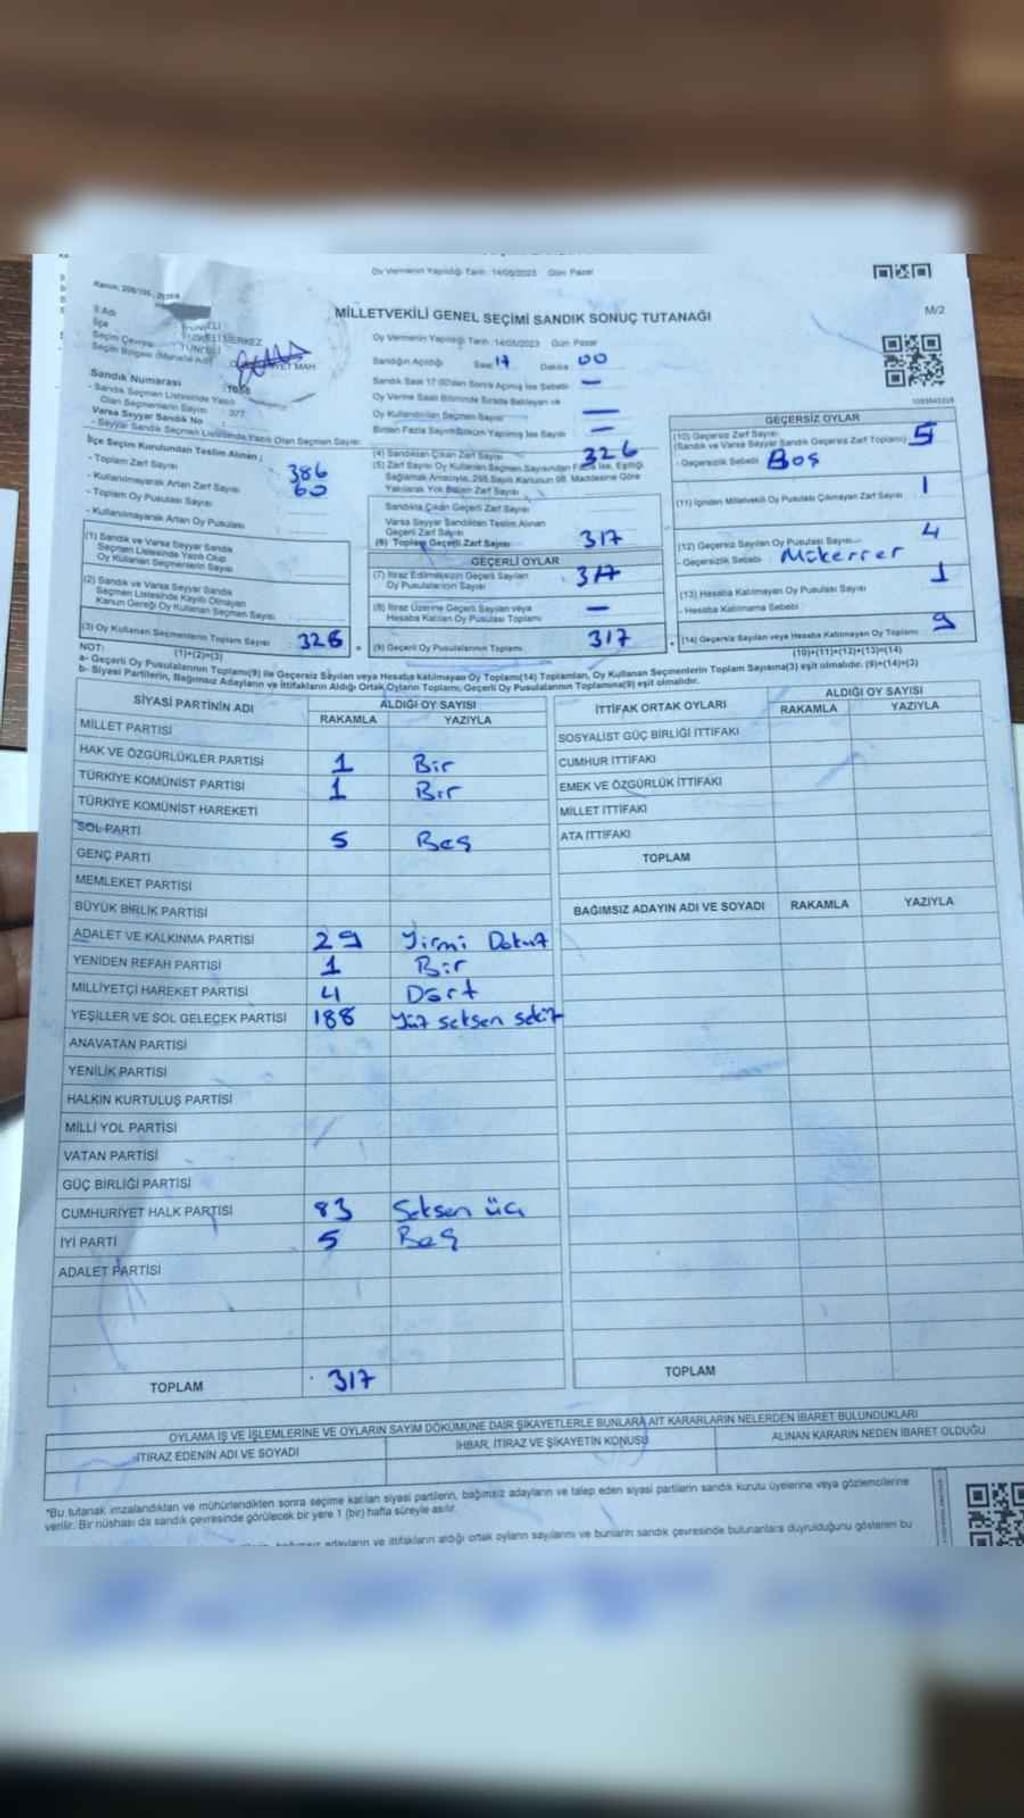 Oy Vermenin Yapıldığı Tarih: 14/05/2023 Gün: Pazar
MİLLETVEKİLİ GENEL SEÇİMİ SANDIK SONUÇ TUTANAĞI
M/2
İl Adı
İlçe
Seçim Çevresi TUNCELİ
Sandık Numarası
- Sandık Seçmen Listesinde Yazılı
Olan Seçmenlerin Sayısı 377
Varsa Seyyar Sandık No
- Seyyar Sandık Seçmen Listesinde Yazılı Olan Seçmen Sayısı
İlçe Seçim Kurulundan Teslim Alınan ;
- Toplam Zarf Sayısı 386
- Kullanılmayarak Artan Zarf Sayısı 60
- Toplam Oy Pusulası Sayısı
- Kullanılmayarak Artan Oy Pusulası
(1) Sandık ve Varsa Seyyar Sandık
Seçmen Listesinde Yazılı Olup
Oy Kullanan Seçmenlerin Sayısı
(2) Sandık ve Varsa Seyyar Sandık
Seçmen Listesinde Kayıtlı Olmayan
Kanun Gereği Oy Kullanan Seçmen Sayısı
(3) Oy Kullanan Seçmenlerin Toplam Sayısı 326
(1)+(2)=(3)
Oy Vermenin Yapıldığı Tarih: 14/05/2023 Gün: Pazar
Sandığın Açıldığı Saat 17 Dakika 00
Sandık Saat 17:00'dan Sonra Açılmış İse Sebebi —
Oy Verme Saati Bitiminde Sırada Bekleyen ve
Oy Kullandırılan Seçmen Sayısı —
Birden Fazla Sayım Döküm Yapılmış İse Sayısı —
(4) Sandıktan Çıkan Zarf Sayısı 326
(5) Zarf Sayısı Oy Kullanan Seçmen Sayısından Fazla İse, Eşitliği
Sağlamak Amacıyla, 298 Sayılı Kanunun 98. Maddesine Göre
Yakılarak Yok Edilen Zarf Sayısı
Sandıkta Çıkan Geçerli Zarf Sayısı
Varsa Seyyar Sandıktan Teslim Alınan
Geçerli Zarf Sayısı
(6) Toplam Geçerli Zarf Sayısı 317
GEÇERLİ OYLAR
(7) İtiraz Edilmeksizin Geçerli Sayılan
Oy Pusulalarının Sayısı 317
(8) İtiraz Üzerine Geçerli Sayılan veya
Hesaba Katılan Oy Pusulası Toplamı —
(9) Geçerli Oy Pusulalarının Toplamı 317
GEÇERSİZ OYLAR
(10) Geçersiz Zarf Sayısı
(Sandık ve Varsa Seyyar Sandık Geçersiz Zarf Toplamı) 5
- Geçersizlik Sebebi Boş
(11) İçinden Milletvekili Oy Pusulası Çıkmayan Zarf Sayısı 1
(12) Geçersiz Sayılan Oy Pusulası Sayısı 4
- Geçersizlik Sebebi Mükerrer
(13) Hesaba Katılmayan Oy Pusulası Sayısı 1
- Hesaba Katılmama Sebebi
(14) Geçersiz Sayılan veya Hesaba Katılmayan Oy Toplamı 9
(10)+(11)+(12)+(13)=(14)
NOT:
a- Geçerli Oy Pusulalarının Toplamı(9) ile Geçersiz Sayılan veya Hesaba katılmayan Oy Toplamı(14) Toplamları, Oy Kullanan Seçmenlerin Toplam Sayısına(3) eşit olmalıdır. (9)+(14)=(3)
b- Siyasi Partilerin, Bağımsız Adayların ve İttifakların Aldığı Ortak Oyların Toplamı, Geçerli Oy Pusulalarının Toplamına(9) eşit olmalıdır.
SİYASİ PARTİNİN ADI ALDIĞI OY SAYISI
RAKAMLA YAZIYLA
MİLLET PARTİSİ
HAK VE ÖZGÜRLÜKLER PARTİSİ 1 Bir
TÜRKİYE KOMÜNİST PARTİSİ 1 Bir
TÜRKİYE KOMÜNİST HAREKETİ
SOL PARTİ 5 Beş
GENÇ PARTİ
MEMLEKET PARTİSİ
BÜYÜK BİRLİK PARTİSİ
ADALET VE KALKINMA PARTİSİ 29 Yirmi Dokuz
YENİDEN REFAH PARTİSİ 1 Bir
MİLLİYETÇİ HAREKET PARTİSİ 4 Dört
YEŞİLLER VE SOL GELECEK PARTİSİ 188 Yüz seksen sekiz
ANAVATAN PARTİSİ
YENİLİK PARTİSİ
HALKIN KURTULUŞ PARTİSİ
MİLLİ YOL PARTİSİ
VATAN PARTİSİ
GÜÇ BİRLİĞİ PARTİSİ
CUMHURİYET HALK PARTİSİ 83 Seksen üç
İYİ PARTİ 5 Beş
ADALET PARTİSİ
TOPLAM 317
İTTİFAK ORTAK OYLARI ALDIĞI OY SAYISI
RAKAMLA YAZIYLA
SOSYALİST GÜÇ BİRLİĞİ İTTİFAKI
CUMHUR İTTİFAKI
EMEK VE ÖZGÜRLÜK İTTİFAKI
MİLLET İTTİFAKI
ATA İTTİFAKI
TOPLAM
BAĞIMSIZ ADAYIN ADI VE SOYADI RAKAMLA YAZIYLA
TOPLAM
OYLAMA İŞ VE İŞLEMLERİNE VE OYLARIN SAYIM DÖKÜMÜNE DAİR ŞİKAYETLERLE BUNLARA AİT KARARLARIN NELERDEN İBARET BULUNDUKLARI
İTİRAZ EDENİN ADI VE SOYADI İHBAR, İTİRAZ VE ŞİKAYETİN KONUSU ALINAN KARARIN NEDEN İBARET OLDUĞU
*Bu tutanak, imzalandıktan ve mühürlendikten sonra seçime katılan siyasi partilerin, bağımsız adayların ve talep eden siyasi partilerin sandık kurulu üyelerine veya gözlemcilerine
verilir. Bir nüshası da sandık çevresinde görülecek bir yere 1 (bir) hafta süreyle asılır.
adayların ve ittifakların aldığı ortak oyların sayılarını ve bunların sandık çevresinde bulunanlara duyrulduğunu gösteren bu